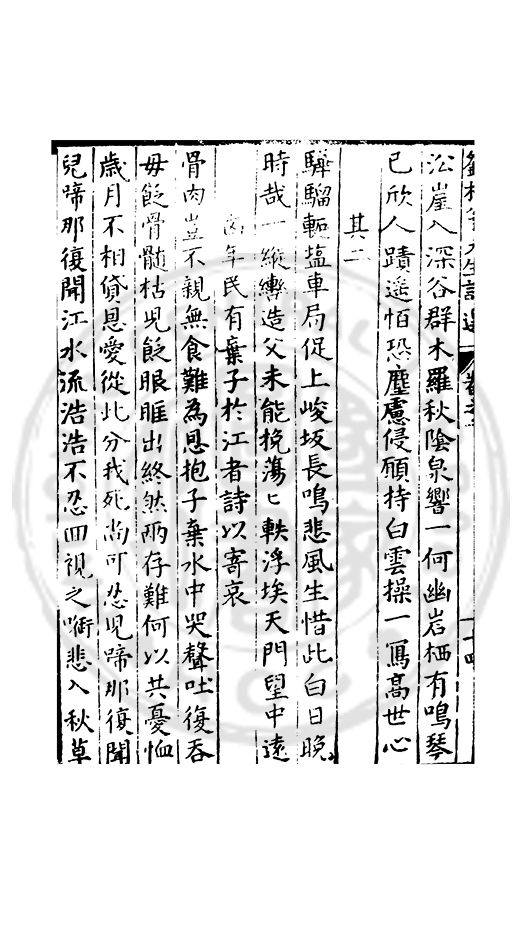 沿崖入深谷群木羅秋陰泉響一何幽岩栖有鳴琴
已欣人蹟遥怕恐塵慮侵願持白雲操一寫高世心
其二
驊騮軛塩車局促上峻坂長鳴悲風生惜此白日晚
時哉一縱轡造父未能挽蕩匕軼浮埃天門望中遠
年民有棄子於江者詩以寄哀
骨肉豈不親無食難為恩抱子棄水中哭聲吐復吞
毋飢骨髓枯児飢眼眶出終然兩存難何以共憂恤
歲月不相貸恩愛從此分我死尚可忍児啼那復聞
兒啼那復聞江水流浩浩不忍回視之啣悲入秋草